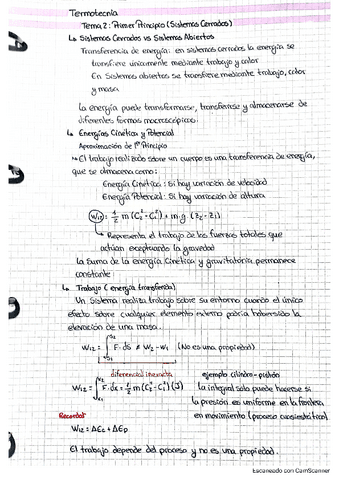 Termotecnia
Tema 2: Primer Principio (Sistemas Cerrados)
↳ Sistemas Cerrados vs Sistemas Abiertos
Transferencia de energía: en sistemas cerrados la energía se
transfiere únicamente mediante trabajo y calor
En Sistemas abiertos se transfiere mediante trabajo, calor
y masa
La energía puede transformarse, transferirse y almacenarse de
diferentes formas macroscópicas.
↳ Energías Cinética y Potencial
Aproximación de 1º Principio
↳ El trabajo realizado sobre un cuerpo es una transferencia de energía,
que se almacena como:
Energía Cinética: Si hay variación de velocidad
Energía Potencial: Si hay variación de altura
W12 = 1/2 m (C2² - C1²) + m·g (z2 - z1)
↳ Representa el trabajo de las fuerzas totales que
actúan exceptuando la gravedad
La suma de la energía Cinética y gravitatoria permanece
constante
↳ Trabajo (energía transferida)
Un Sistema realiza trabajo sobre su entorno cuando el único
efecto sobre cualquier elemento externo podría haber sido la
elevación de una masa.
W12 = ∫ F·ds ≠ W2 - W1 (No es una propiedad)
diferencial inexacta
ejemplo cilindro-pistón
W12 = ∫ F·dx = 1/2 m (C2² - C1²) (J)
la integral solo puede hacerse si
la presión es uniforme en la frontera
en movimiento (proceso cuasiestático)
Recordar
W12 = ΔEc + ΔEp
El trabajo depende del proceso y no es una propiedad.
Escaneado con CamScanner